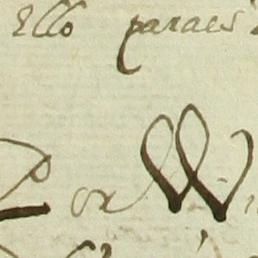 Ello paraes
Por Wi